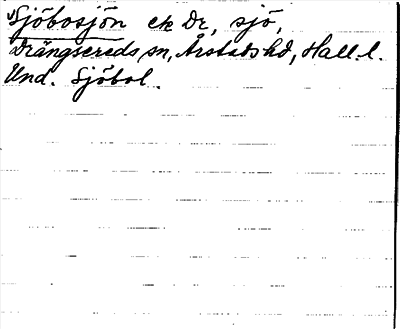 Sjöbosjön ek Dr, sjö,
Drängsereds sn, Årstads hd, Hall. l.
Und. Sjöbol.